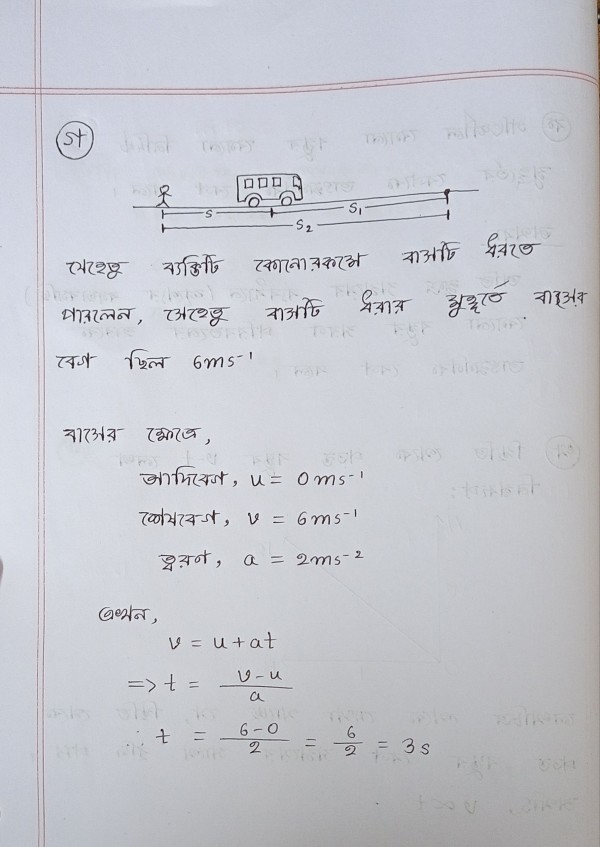 গ
S
S₁
S₂
যেহেতু ব্যক্তিটি কোনোরকমে বাসটি ধরতে
পারলেন, সেহেতু বাসটি ধরার মুহূর্তে বাসের
বেগ ছিল 6ms⁻¹
বাসের ক্ষেত্রে,
আদিবেগ, u = 0ms⁻¹
শেষবেগ, v = 6ms⁻¹
ত্বরণ, a = 2ms⁻²
এখন,
v = u + at
=> t = (v - u)/a
∴ t = (6 - 0)/2 = 6/2 = 3s